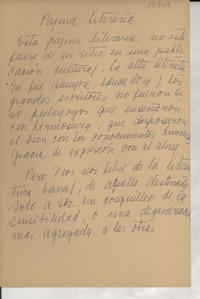 Pagina Literaria
Esta pagina literaria no está
fuera de su sitio en una publi
cación cultural. La alta literatura
fue siempre educadora; los
grandes escritores no fueron si
no pedagogos que enseñaron
con hermosura, que desposaron
el bien con los conocimientos humanos
gracia de expresión con el alma
Pero Dios nos libre de la litera
tura banal, de aquella destinada
solo a ser un cosquilleo de la
sensibilidad, o una degeneración
mas agregada a las otras